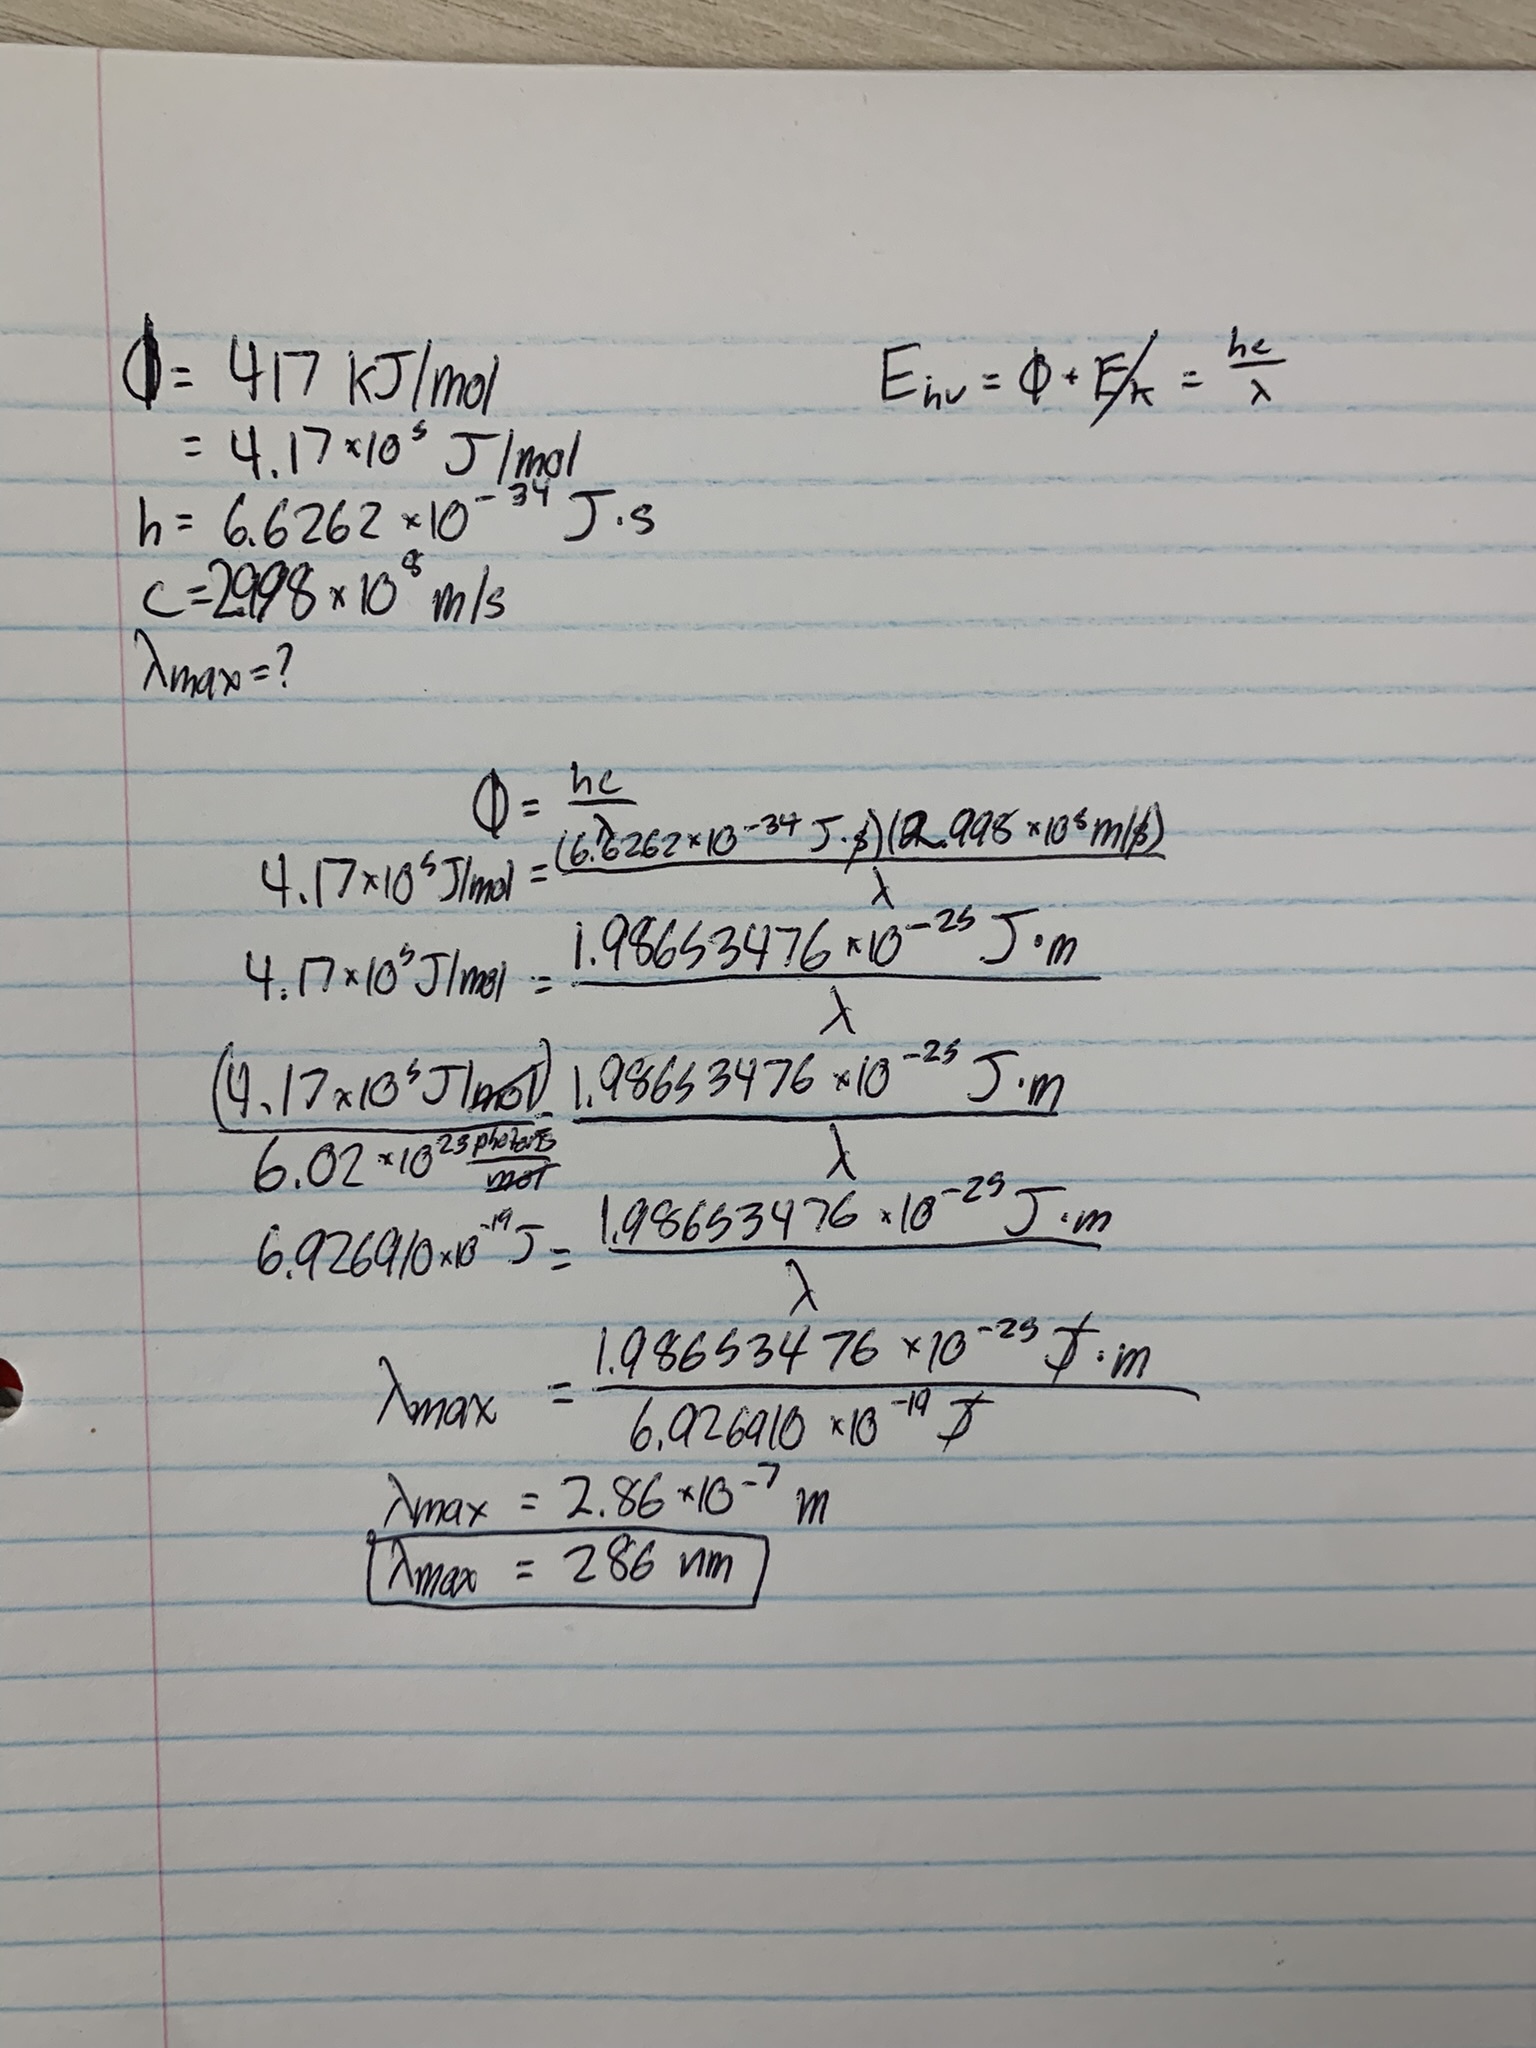 Φ = 417 kJ/mol
= 4.17×10⁵ J/mol
h = 6.6262 ×10⁻³⁴ J·s
c = 2.998 × 10⁸ m/s
λmax = ?
Einν = Φ + Ek = hc/λ
Φ = hc/λ
4.17×10⁵ J/mol = (6.6262×10⁻³⁴ J·s)(2.998 ×10⁸ m/s)/λ
4.17×10⁵ J/mol = 1.98653476 ×10⁻²⁵ J·m/λ
(4.17×10⁵ J/mol)/6.02 ×10²³ photons/mol = 1.98653476 ×10⁻²⁵ J·m/λ
6.926910×10⁻¹⁹ J = 1.98653476 ×10⁻²⁵ J·m/λ
λmax = 1.98653476 ×10⁻²⁵ J·m/6.926910 ×10⁻¹⁹ J
λmax = 2.86 ×10⁻⁷ m
λmax = 286 nm